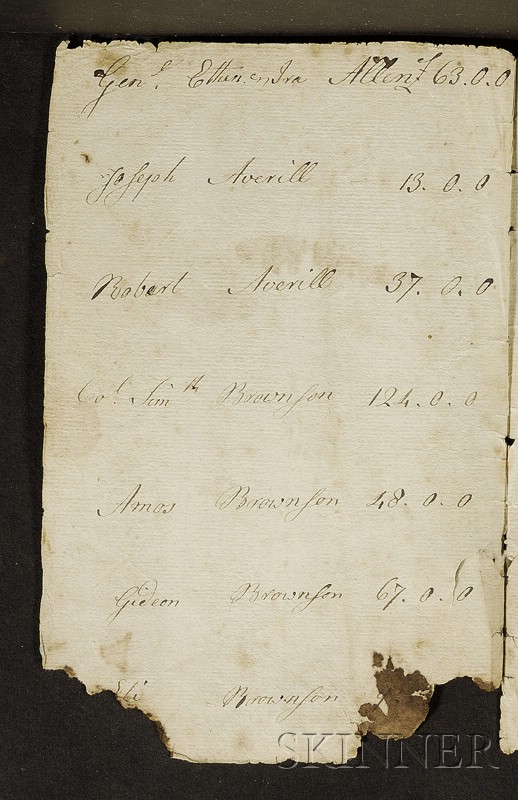 Genl. Ethan & Ira Allen £ 63.0.0
Joseph Averill 13.0.0
Robert Averill 37.0.0
Col. Tim.th Brownson 124.0.0
Amos Brownson 48.0.0
Gideon Brownson 67.0.0
Eli Brownson
SKINNER